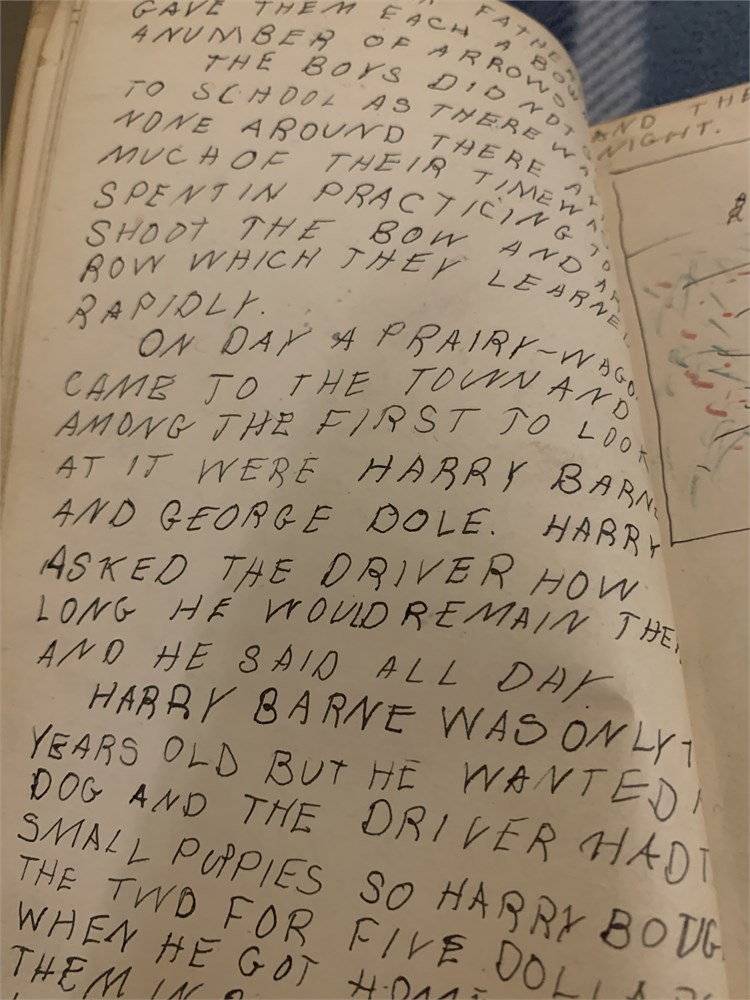 FATHER
GAVE THEM EACH A BOW
ANUMBER OF ARROWS
THE BOYS DID NOT
TO SCHOOL AS THERE WA
NONE AROUND THERE AN
MUCH OF THEIR TIME WA
SPENT IN PRACTICING TO
SHOOT THE BOW AND AR
ROW WHICH THEY LEARNE
RAPIDLY.
ON DAY A PRAIRY-WAGO
CAME TO THE TOWN AND
AMONG THE FIRST TO LOOK
AT IT WERE HARRY BARNE
AND GEORGE DOLE. HARRY
ASKED THE DRIVER HOW
LONG HE WOULD REMAIN THER
AND HE SAID ALL DAY.
HARRY BARNE WAS ONLY T
YEARS OLD BUT HE WANTED A
DOG AND THE DRIVER HAD T
SMALL PUPPIES SO HARRY BOUG
THE TWO FOR FIVE DOLLA
WHEN HE GOT HOME
THEM IN
AND THE
NIGHT.